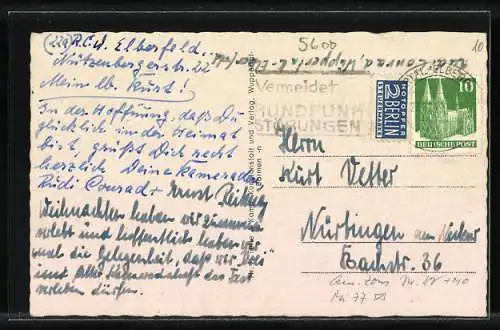 (22a) R.C.d. Elberfeld,
Nützenbergerstr. 22
Mein lb. Kurt!
In der Hoffnung, daß Du
glücklich in der Heimat
bist, grüßt Dich recht
herzlich Deine Kameraden
Rudi Conrad + Ernst
Weihnachten haben wir zusammen
erlebt und hoffentlich haben wir
mal die Gelegenheit, daß wir "Drei"
in alter Kameradschaft das Fest
erleben dürfen.
5600
Rudi Conrad, Wuppertal-
Vermeidet
RUNDFUNK
STÖRUNGEN
NOTOPFER
2 BERLIN
STEUERMARKE
10
DEUTSCHE POST
10
Herrn
Kurt Vetter
Nürtingen am Neckar
Bachstr. 36